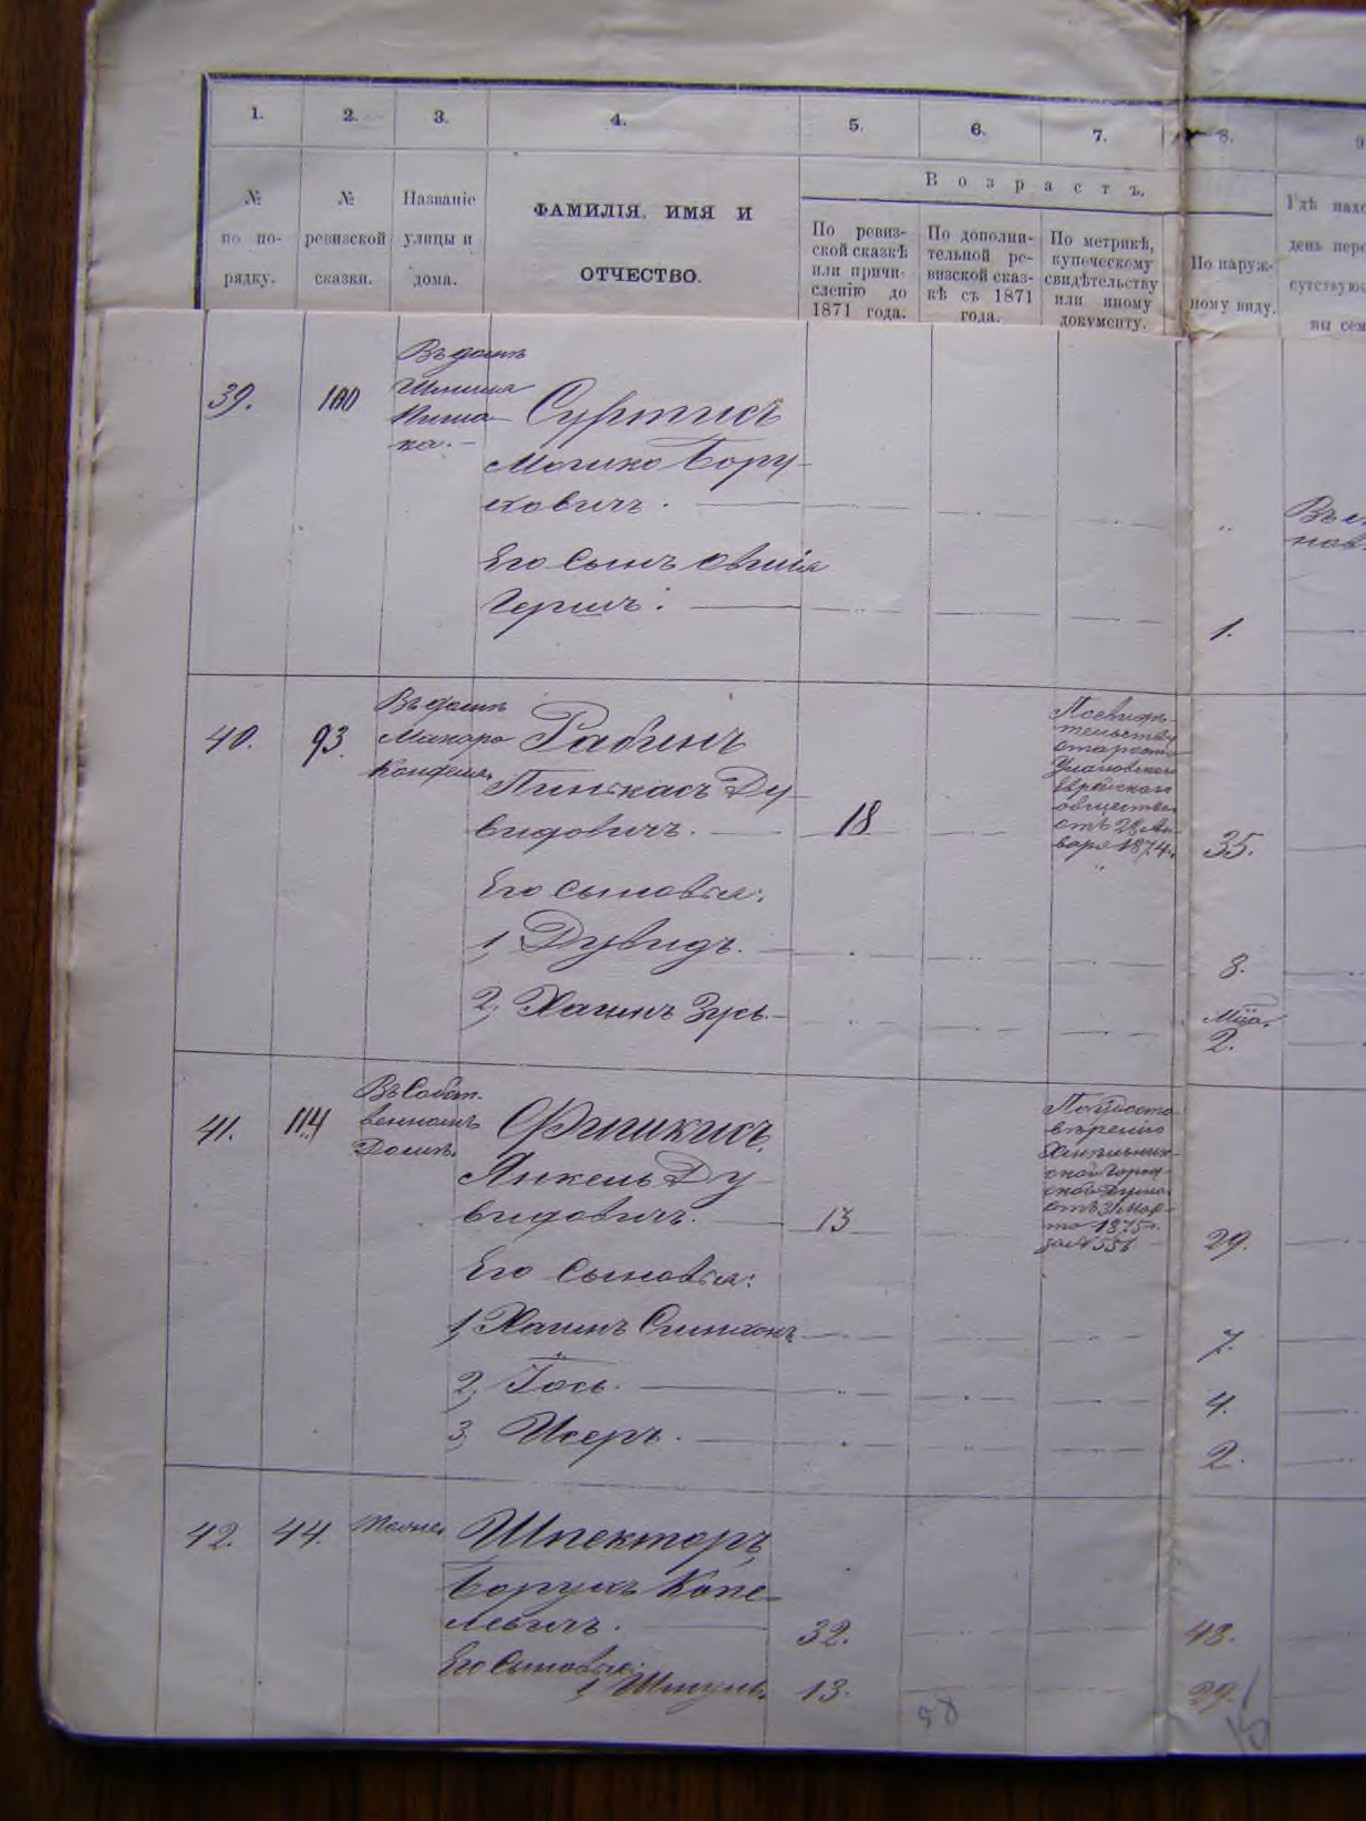 1.
2.
3.
4.
5.
6.
7.
8.
9
№
по по-
рядку.
№
ревизской
сказки.
Названіе
улицы и
дома.
ФАМИЛІЯ, ИМЯ И
ОТЧЕСТВО.
Возрастъ.
По ревиз-
ской сказкѣ
или причи-
сленію до
1871 года.
По дополни-
тельной ре-
визской сказ-
кѣ съ 1871
года.
По метрикѣ,
купеческому
свидѣтельству
или иному
документу.
По наруж-
ному виду.
Гдѣ нахо
день пере
сутствую
ны сем
39.
100
Въ домѣ
Суртисъ
Мошко Бору-
ховичъ.
Въ
Его сынъ Овшія
Гершъ.
1.
40.
93.
Въ домѣ
Рабинъ
Пинкасъ Ду-
видовичъ.
18
Посвидѣ-
тельству
старосты
Улановскаго
Еврейскаго
общества
отъ 28 Ян-
варя 1874 г.
35.
Его сыновья:
1, Дувидъ.
8.
2, Хаимъ Зусь.
Мѣс.
2.
41.
114
Въ Собст-
венномъ
Домѣ.
Фишкисъ,
Янкель Ду-
видовичъ.
13
По удосто-
вѣренію
Хмѣльник-
ской Город-
ской Думы
отъ 31 Мар-
та 1875 г.
за №
29.
Его Сыновья:
1, Хаимъ Симхонъ
7.
2, Іось.
4.
3, Исеръ.
2.
42.
44.
Тоже.
Шпекторъ,
Борухъ Копе-
левичъ.
32.
48.
Его Сыновья:
1, Шмуль.
13.
29.